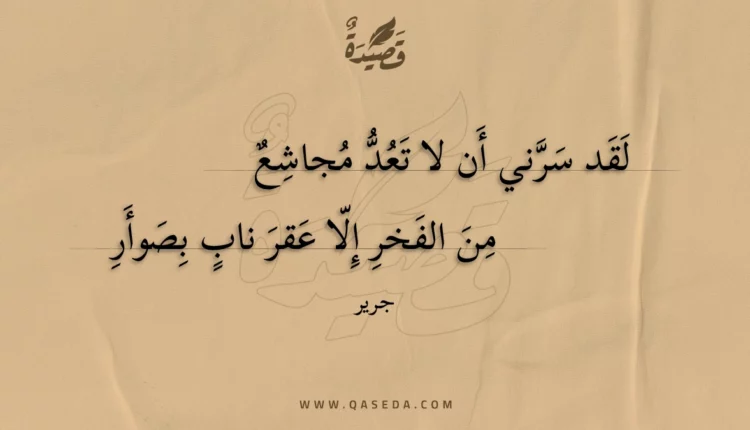 قَصِيْدَةٌ
لَقَد سَرَّني أَن لا تَعُدُّ مُجاشِعٌ
مِنَ الفَخرِ إِلّا عَقرَ نابٍ بِصَوأَرِ
جرير
WWW.QASEDA.COM